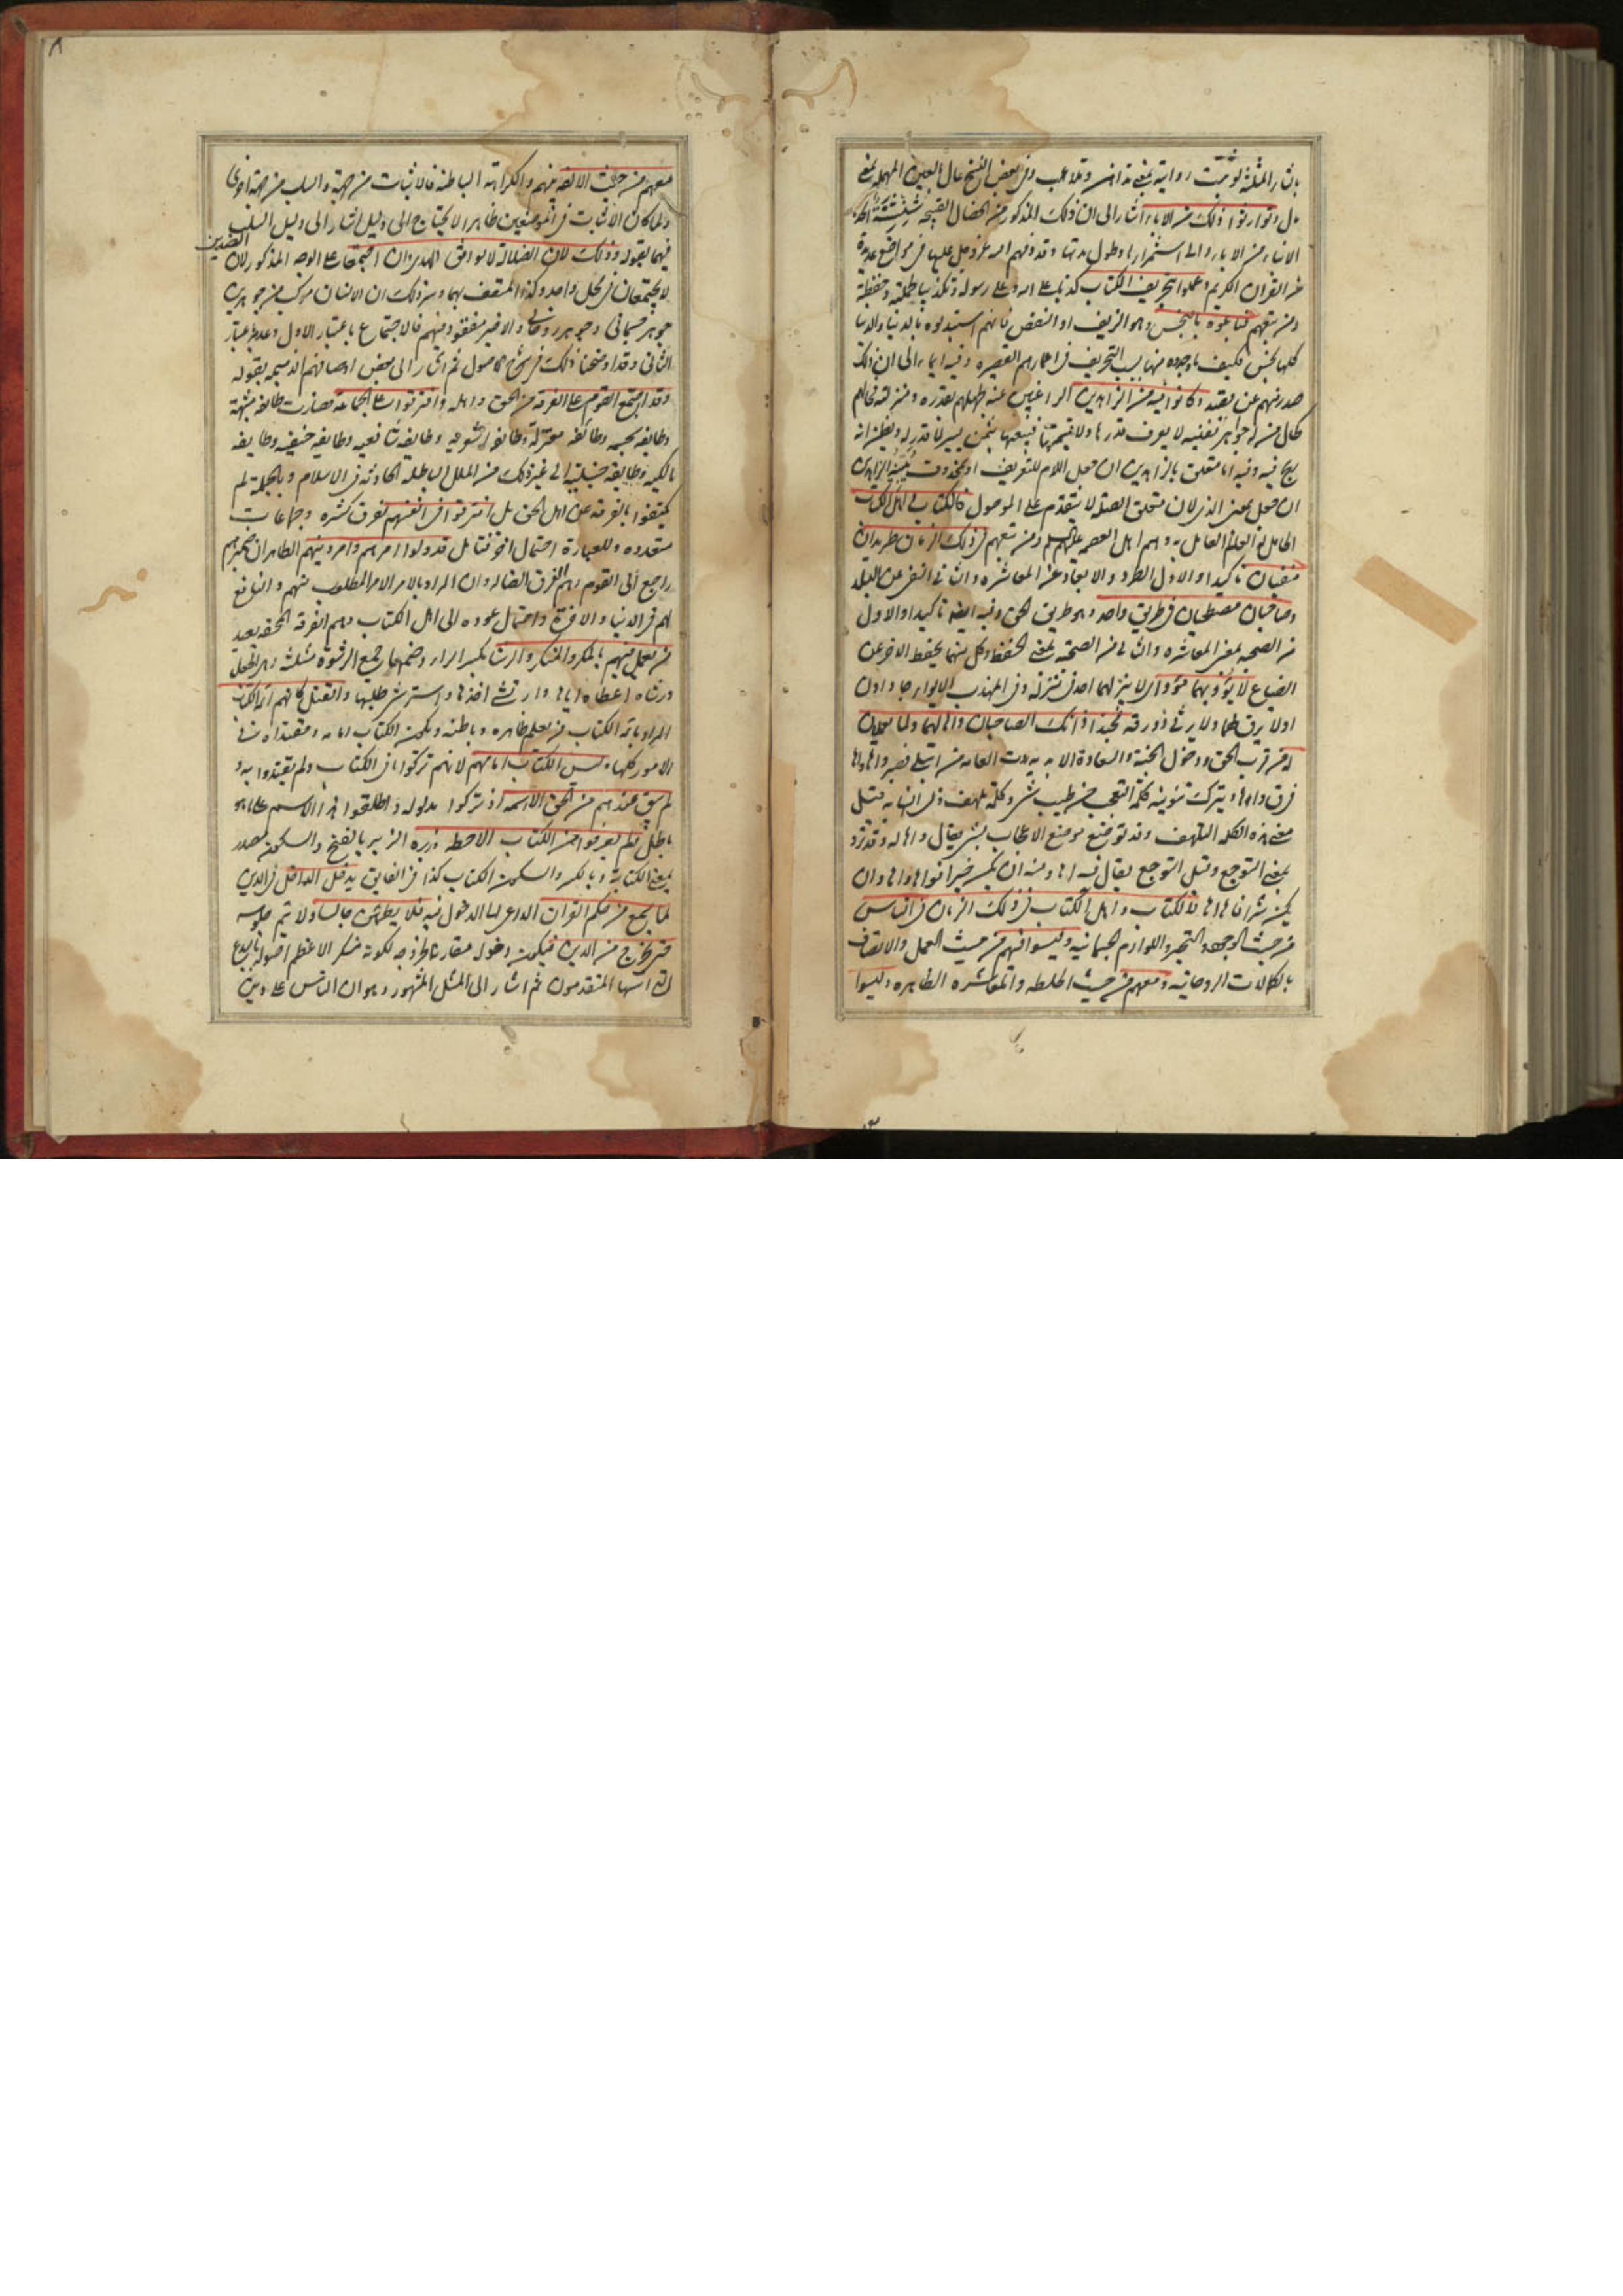 بالثاء المثلثة لو ثبت رواية بمعنى تداهن وتلاعب وفي بعض النسخ عال بالعين المهملة بمعنى
مال وتوارثوا ذلك من الآباء أشار إلى أن ذلك المذكور من الخصال القبيحة شنشنة أخذها
الأبناء من الآباء وإلى استمرارها وطول مدتها وقد ذمهم الله عز وجل عليها في مواضع عديدة
من القرآن الكريم وعملوا بتحريف الكتاب كذبا على الله وعلى رسوله وتكذيبا لحملته وحفظته
ومن تبعهم فباعوه بالبخس وهو الزيف او النقص فانهم استبدلوه بالدنيا والدنيا
كلها بخس فكيف ما وجدوه منها بسبب التحريف في اعمارهم القصيرة وفيه ايماء الى ان ذلك
صدر منهم عن بصيرة وكانوا فيه من الزاهدين الراغبين عنه لجهلهم بقدره ومنزلته فحالهم
كحال من له جواهر نفيسة لا يعرف قدرها ولا قيمتها فيبيعها بثمن يسير لا قدر له ويظن انه
ربح فيه وفيه اما متعلق بالزاهدين ان جعل اللام للتعريف او بمحذوف يبينه الزاهدين
ان جعل بمعنى الذي لان متعلق الصلة لا يتقدم على الموصول فالكتاب واهل الكتاب
الحاملون لعلمه العامل به وهم اهل العصمة عليهم السلام ومن تبعهم في ذلك الزمان طريدان
منفيان تأكيد او الاول الطرد والابعاد عن المعاشرة والثاني النفي عن البلد
وصاحبان مصطحبان في طريق واحد وهو طريق الحق وفيه ايضا تأكيد او الاول
من الصحبة بمعنى المعاشرة والثاني من الصحبة بمعنى الحفظ وكل منهما يحفظ الآخر عن
الضياع لا يؤويهما مؤو اي لا ينزلهما احد في منزله وفي المهذب الايواء جا دادن
اولا يرق لهما ولا يرثي ذو رقة فحبذا ذانك الصاحبان واها لهما ولما يعملان
له من قرب الحق ودخول الجنة والسعادة الابدية
فرق واها ويترك تنوينه كلمة التعجب من طيب شيء وكلمة تلهف وفي النهاية قيل
معنى هذه الكلمة التلهف وقد توضع موضع الاعجاب بشيء يقال واها له وقد ترد
بمعنى التوجع وقيل التوجع يقال فيه آها ومنه ان يكن خيرا فواها واها وان
يكن شرا فآها آها فالكتاب واهل الكتاب في ذلك الزمان في الناس
من حيث الوجود والتحيز واللوازم الجسمانية وليسوا فيهم من حيث العمل والاتصاف
بالكمالات الروحانية ومعهم من حيث الخلطة والمعاشرة الظاهرة وليسوا
معهم من حيث الالفة منهم والكراهة الباطنة فالاثبات من جهة والسلب من جهة اخرى
ولما كان الاثبات في الموضعين ظاهرا لا يحتاج الى دليل اشار الى دليل السلب
فيهما بقوله وذلك لان الضلالة لا توافق الهدى وان اجتمعا على الوجه المذكور لان
الضدين
لا يجتمعان في محل واحد وكذا المتصف بهما ومن ذلك ان الانسان مركب من جوهرين
جوهر جسماني وجوهر روحاني والاخير مفقود منهم فالاجتماع باعتبار الاول وعدمه باعتبار
الثاني وقد اوضحنا ذلك في شرح الاصول ثم اشار الى بعض اوصافهم الذميمة بقوله
وقد اجتمع القوم على الفرقة من الحق واهله وافترقوا عن الجماعة فصارت طائفة مشبهة
وطائفة مجسمة وطائفة معتزلة وطائفة اشعرية وطائفة شافعية وطائفة حنيفية وطائفة
مالكية وطائفة حنبلية الى غير ذلك من الملل الباطلة الحادثة في الاسلام وبالجملة لم
يكتفوا بالفرقة عن اهل الحق بل افترقوا في انفسهم بفرق كثيرة وجماعات
متعددة وللعبارة احتمال آخر فتأمل قد ولوا امرهم وامر دينهم الظاهر ان ضميرهم
راجع الى القوم وهم الفرق الضالة وان المراد بالامر الامر المطلوب منهم والنافع
لهم في الدنيا والآخرة واحتمال عوده الى اهل الكتاب وهم الفرقة المحقة بعيد
من يعمل فيهم بالمكر والمنكر والرشا بكسر الراء وضمها جمع الرشوة مثلثة وهي الجعل
ورشاه اعطاه اياها وارتشى اخذها واسترشى طلبها والقتل كانهم ائمة الكتاب
المراد بائمة الكتاب من يعلم ظاهره وباطنه ويكون الكتاب امامه ومقتداه في
الامور كلها وليس الكتاب امامهم لانهم تركوا ما في الكتاب ولم يقتدوا به و
لم يبق عندهم من الحق الا اسمه اذ تركوا مدلوله واطلقوا هذا الاسم على ما هو
باطل ولم يعرفوا من الكتاب الا خطه وزبره الزبر بالفتح والسكون مصدر
بمعنى الكتابة وبالكسر والسكون الكتاب كذا في الفايق يدخل الداخل في الدين
لما يسمع من حكم القرآن الداعي الى الدخول فيه فلا يطمئن جالسا ولا يتم جلوسه
حتى يخرج من الدين فيكون دخوله مقارنا لخروجه لكونه منكرا لاعظم اصوله بالبدع
التي اسسها المتقدمون ثم اشار الى المثل المشهور وهو ان الناس على دين